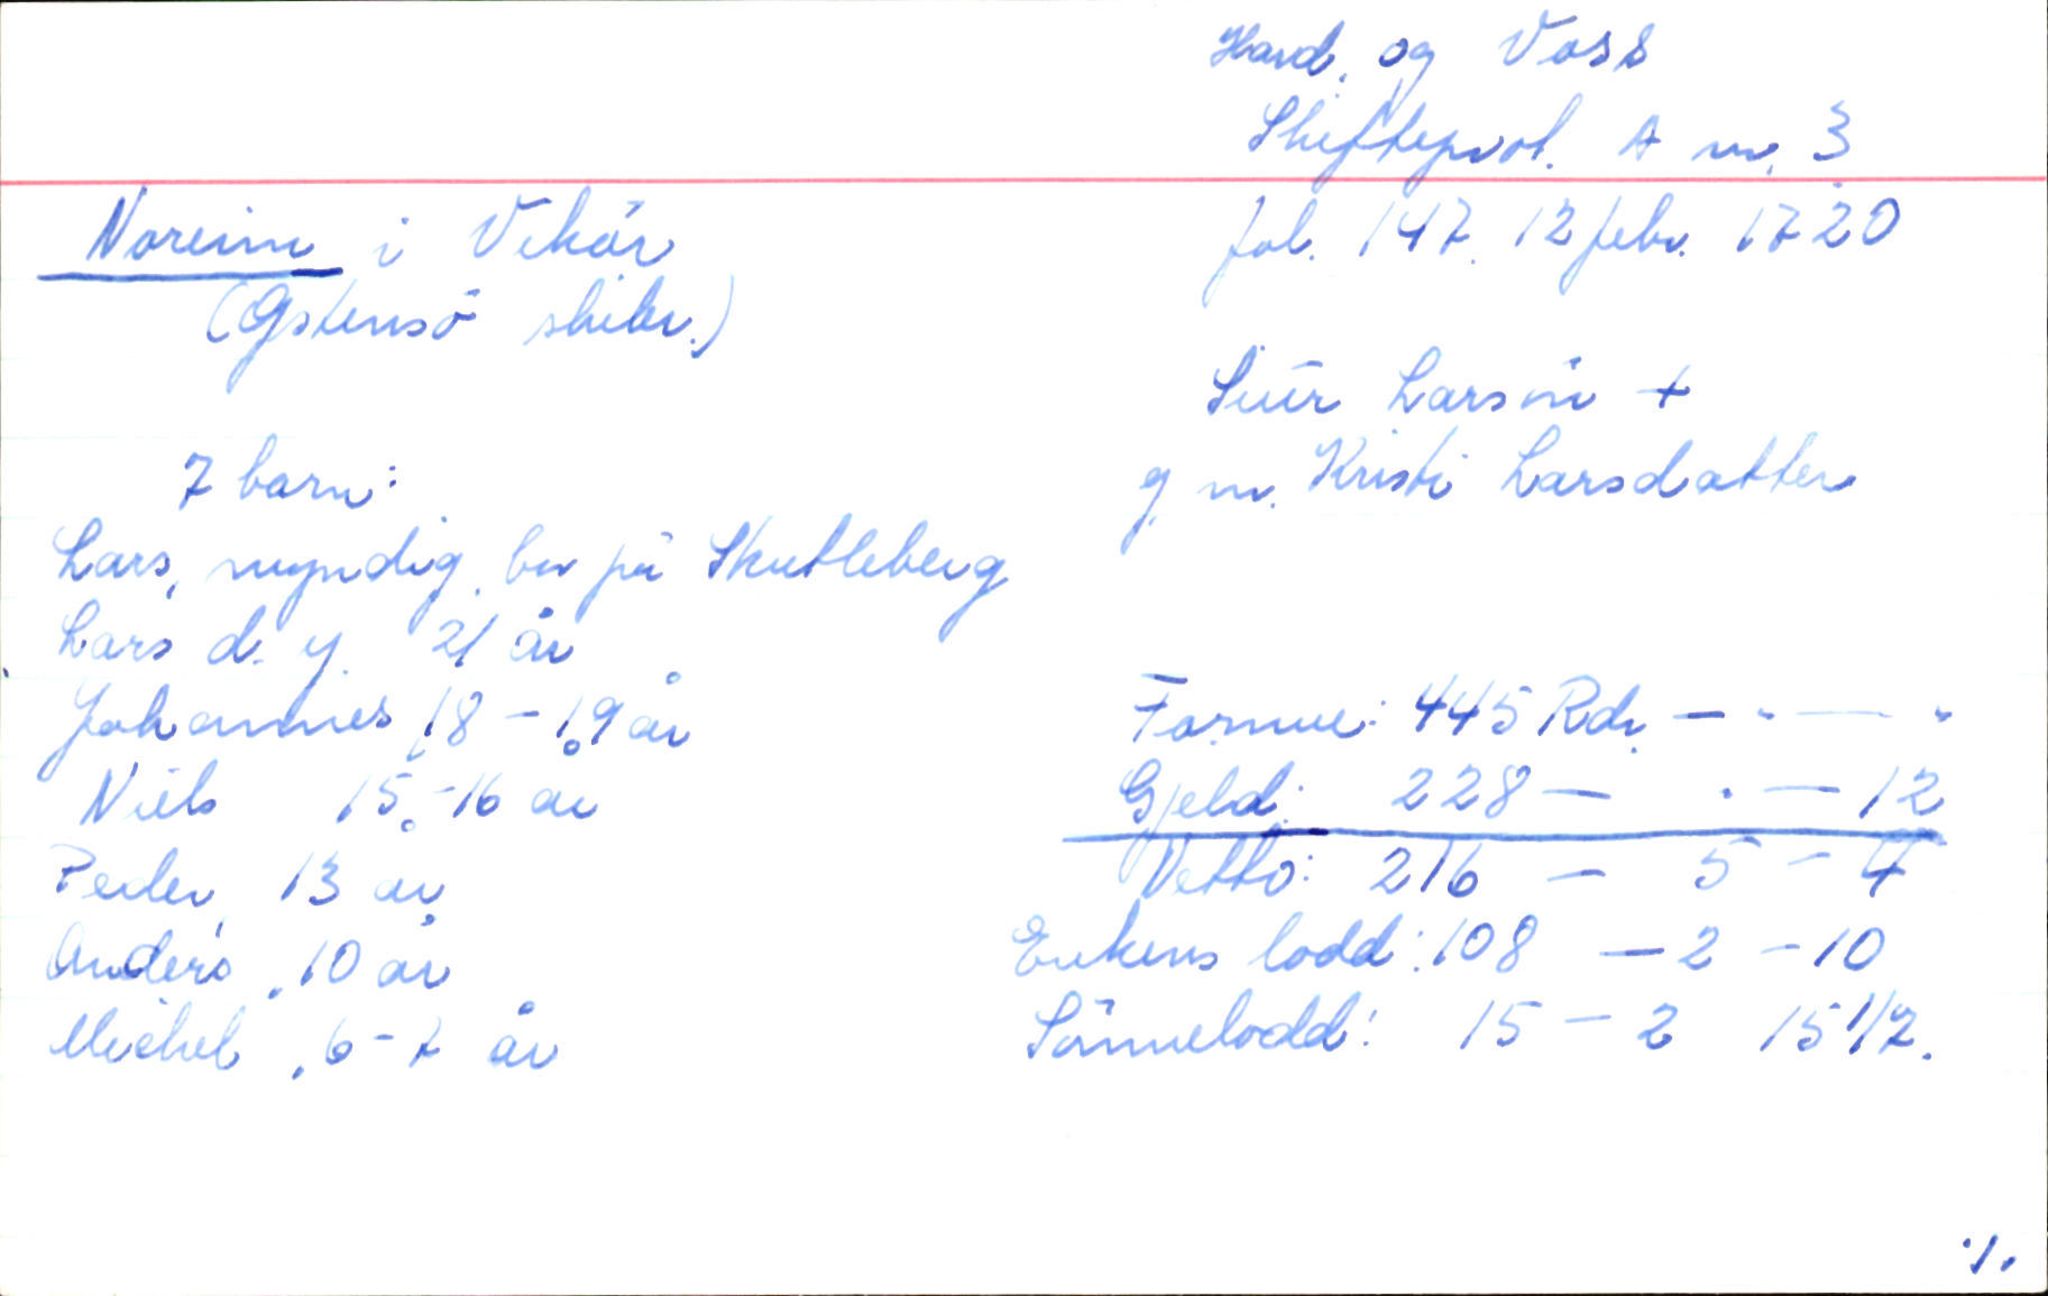 Hard. og Voss
Skifteprot. A nr. 3
fol. 147. 12 febr. 1720
Noreim i Vikör
(Østensö skibr.)
Siur Larsön +
g. m. Kristi Larsdatter
7 barn:
Lars, myndig, bor på Skutleberg
Lars d. y. 21 år
Johannes 18 - 19 år
Niels 15 - 16 år
Peder, 13 år
Anders, 10 år
Michel, 6 - 7 år
Formue: 445 Rdr. — " — "
Gjeld: 228 — . — 12
Netto: 216 — 5 — 4
Enkens lodd: 108 — 2 — 10
Sönnelodd: 15 — 2 15 1/2.
./.